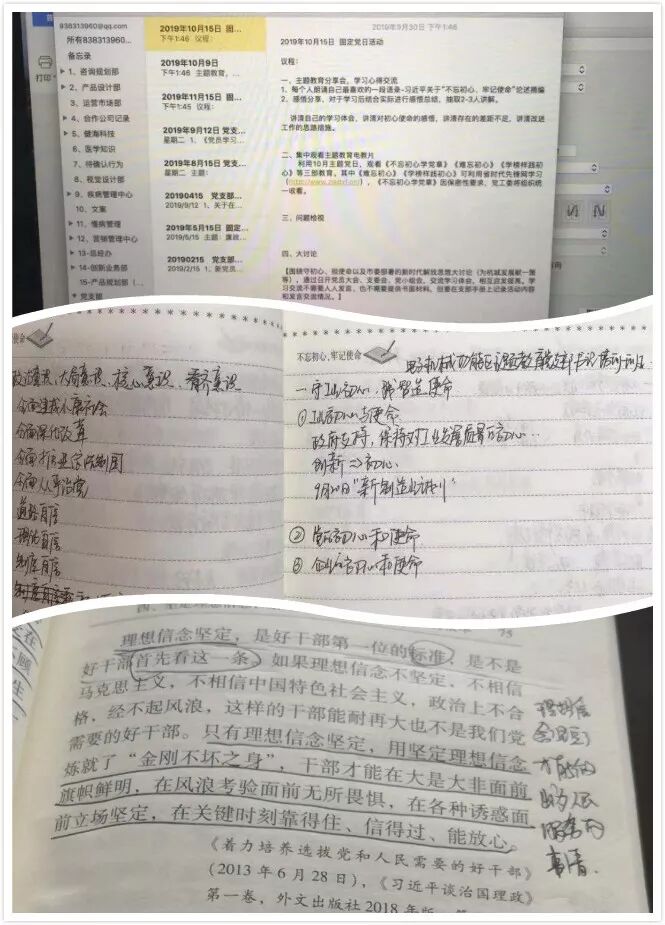 838313960@qq.com
所有838313960...
备忘录
1、咨询规划部
2、产品设计部
3、运营市场部
4、合作公司记录
5、健海科技
6、医学知识
7、待确认行为
8、视觉设计部
9、疾病管理中心
10、文案
11、慢病管理
12、营销管理中心
13-总经办
14-创新业务部
15-产品规划部（...
党支部
打印
2019年10月15日 固...
下午1:46 议程：
2019年10月9日
下午1:46 主题教育，...
2019年11月15日 固...
下午1:45 议程：
2019年9月12日 党支...
星期二 1、《党员学习...
2019年8月15日 党支...
星期二 主题：
20190415 党支部...
2019/9/12 1、关于在...
2019年5月15日 固定...
2019/5/15 主题：廉政...
20190215 党支部...
2019/2/15 1、新党员...
2019年9月30日 下午1:46
2019年10月15日 固定党日活动
议程：
一、主题教育分享会，学习心得交流
1、每个人朗诵自己最喜欢的一段语录-习近平关于“不忘初心、牢记使命”论述摘编
2、感悟分享，对于学习后结合实际进行感悟总结，抽取2-3人讲解。
讲清自己的学习体会，讲清对初心使命的感悟，讲清存在的差距不足，讲清改进
工作的思路措施。
二、集中观看主题教育电教片
利用10月主题党日，观看《不忘初心学党章》《难忘初心》《学榜样践初
心》等三部教育，其中《难忘初心》《学榜样践初心》可利用省时代先锋网学习
），《不忘初心学党章》因保密性要求，党工委将组织统
一收看。
三、问题检视
四、大讨论
【围绕守初心、担使命以及市委部署的新时代解放思想大讨论（为杭城发展献一策
等），通过召开党员大会、支委会、党小组会，交流学习体会，相互启发提高。学
习交流不需要人人发言，也不需要提供书面材料，但要在支部手册上记录活动内容
和发言交流情况。】
使命
政治意识、大局意识、核心意识、看齐意识
全面建成小康社会
全面深化改革
全面依法治国
全面从严治党
道路自信
理论自信
制度自信
不忘初心、牢记使命
一 守初心，
① 初心与使命
政府支持，保持对工业发展质量的初心…
创新⇒初心
9月20日“新制造业计划”
② 党的初心和使命
③ 企业的初心和使命
理想信念坚定，是好干部第一位的标准，是不是
好干部首先看这一条。如果理想信念不坚定，不相信
马克思主义，不相信中国特色社会主义，政治上不合
格，经不起风浪，这样的干部能耐再大也不是我们党
需要的好干部。只有理想信念坚定，用坚定理想信念
炼就了“金刚不坏之身”，干部才能在大是大非面前
旗帜鲜明，在风浪考验面前无所畏惧，在各种诱惑面
前立场坚定，在关键时刻靠得住、信得过、能放心。
《着力培养选拔党和人民需要的好干部》
（2013年6月28日），《习近平谈治国理政》
第一卷，外文出版社2018年版
理想信
念坚定
才能为
人民
服务